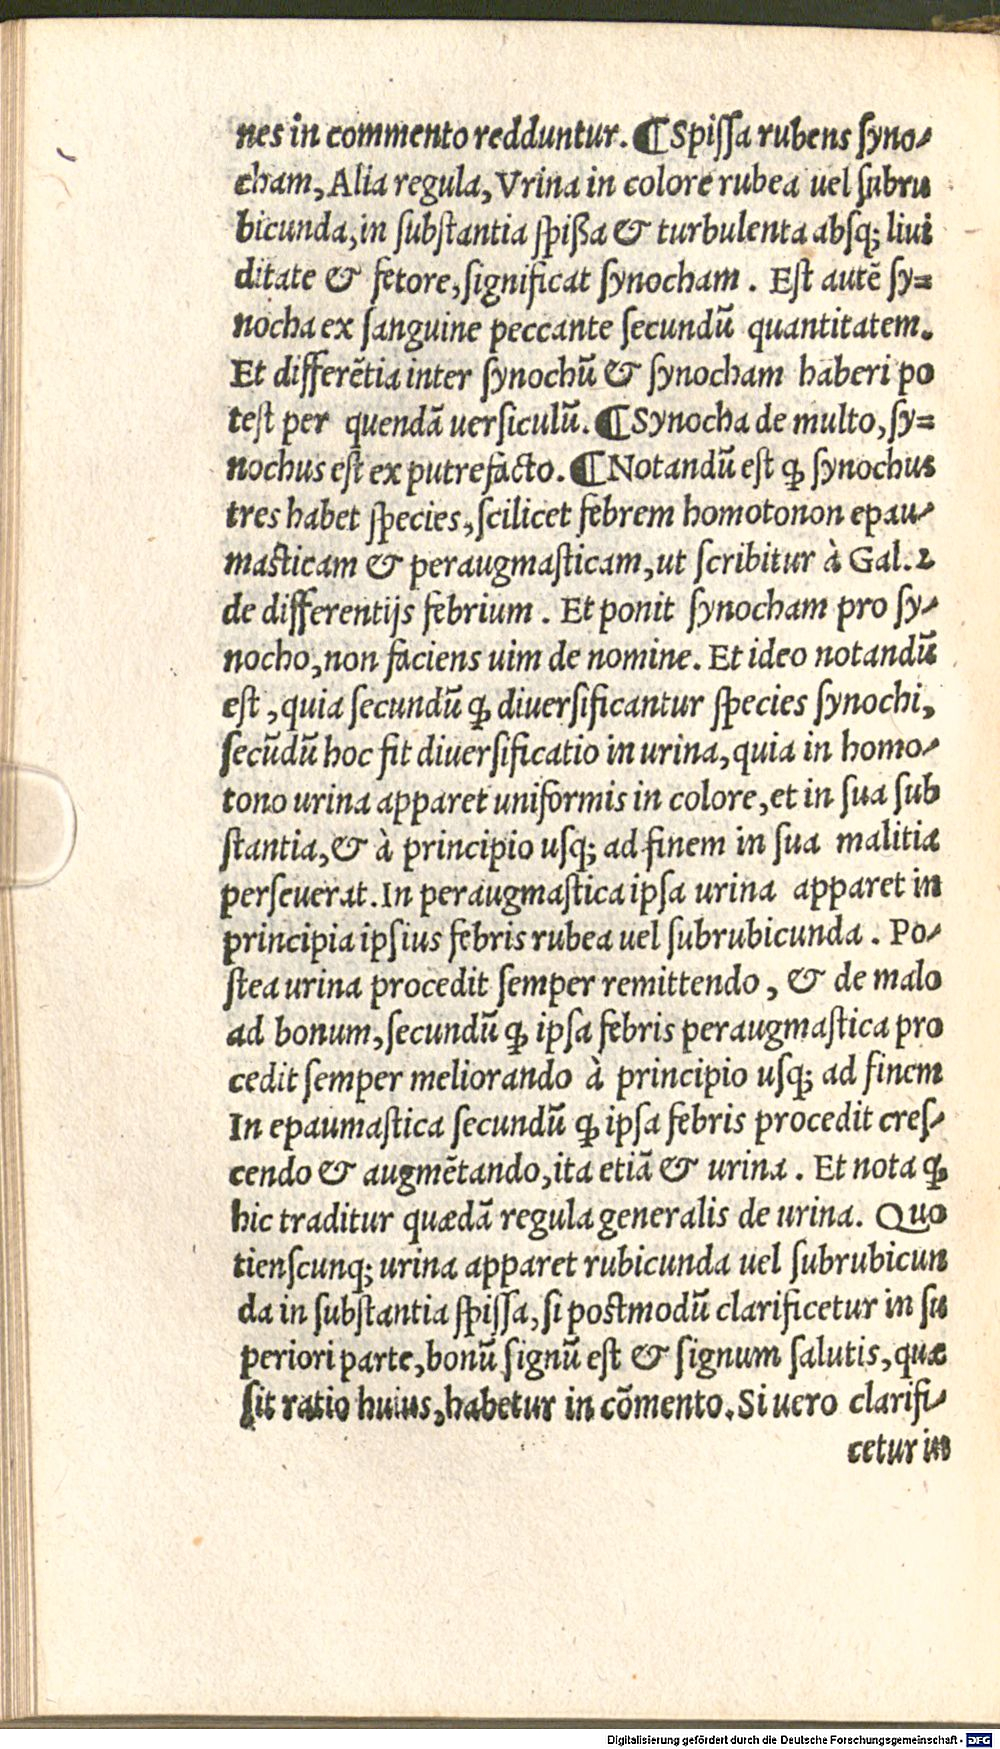 nes in commento redduntur. ¶ Spissa rubens syno-
cham, Alia regula, Vrina in colore rubea uel subru
bicunda, in substantia spißa & turbulenta absq; liui
ditate & fetore, significat synocham. Est autē sy=
nocha ex sanguine peccante secundū quantitatem.
Et differētia inter synochū & synocham haberi po
test per quendā uersiculū. ¶ Synocha de multo, sy=
nochus est ex putrefacto. ¶ Notandū est ꝙ synochus
tres habet species, scilicet febrem homotonon epau-
masticam & peraugmasticam, ut scribitur à Gal. 2
de differentijs febrium. Et ponit synocham pro sy-
nocho, non faciens uim de nomine. Et ideo notandū
est, quia secundū ꝙ diuersificantur species synochi,
secūdū hoc fit diuersificatio in urina, quia in homo-
tono urina apparet uniformis in colore, et in sua sub
stantia, & à principio usq; ad finem in sua malitia
perseuerat. In peraugmastica ipsa urina apparet in
principia ipsius febris rubea uel subrubicunda. Po-
stea urina procedit semper remittendo, & de malo
ad bonum, secundū ꝙ ipsa febris peraugmastica pro
cedit semper meliorando à principio usq; ad finem
In epaumastica secundū ꝙ ipsa febris procedit cres-
cendo & augmētando, ita etiā & urina. Et nota ꝙ
hic traditur quædā regula generalis de urina. Quo
tienscunq; urina apparet rubicunda uel subrubicun
da in substantia spissa, si postmodū clarificetur in su
periori parte, bonū signū est & signum salutis, quæ
sit ratio huius, habetur in cōmento. Si uero clarifi-
cetur in
Digitalisierung gefördert durch die Deutsche Forschungsgemeinschaft - DFG